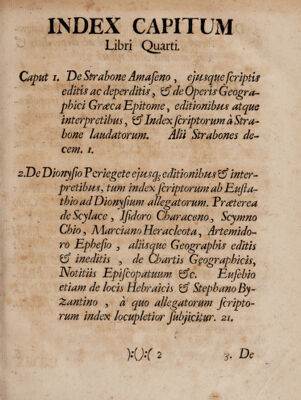 INDEX CAPITUM
Libri Quarti.
Caput 1. De Strabone Amaseno, ejusque scriptis
editis ac deperditis, & de Operis Geogra-
phici Græca Epitome, editionibus atque
interpretibus, & Index scriptorum à Stra-
bone laudatorum. Alii Strabones de-
cem. 1.
2. De Dionysio Periegete ejusq; editionibus & inter-
pretibus, tum index scriptorum ab Eusta-
thio ad Dionysium allegatorum. Præterea
de Scylace, Isidoro Characeno, Scymno
Chio, Marciano Heracleota, Artemido-
ro Ephesio, aliisque Geographis editis
& ineditis, de Chartis Geographicis,
Notitiis Episcopatuum &c. Eusebio
etiam de locis Hebraicis & Stephano By-
zantino, à quo allegatorum scripto-
rum index locupletior subjicitur. 21.
):( ):( 2 3. De